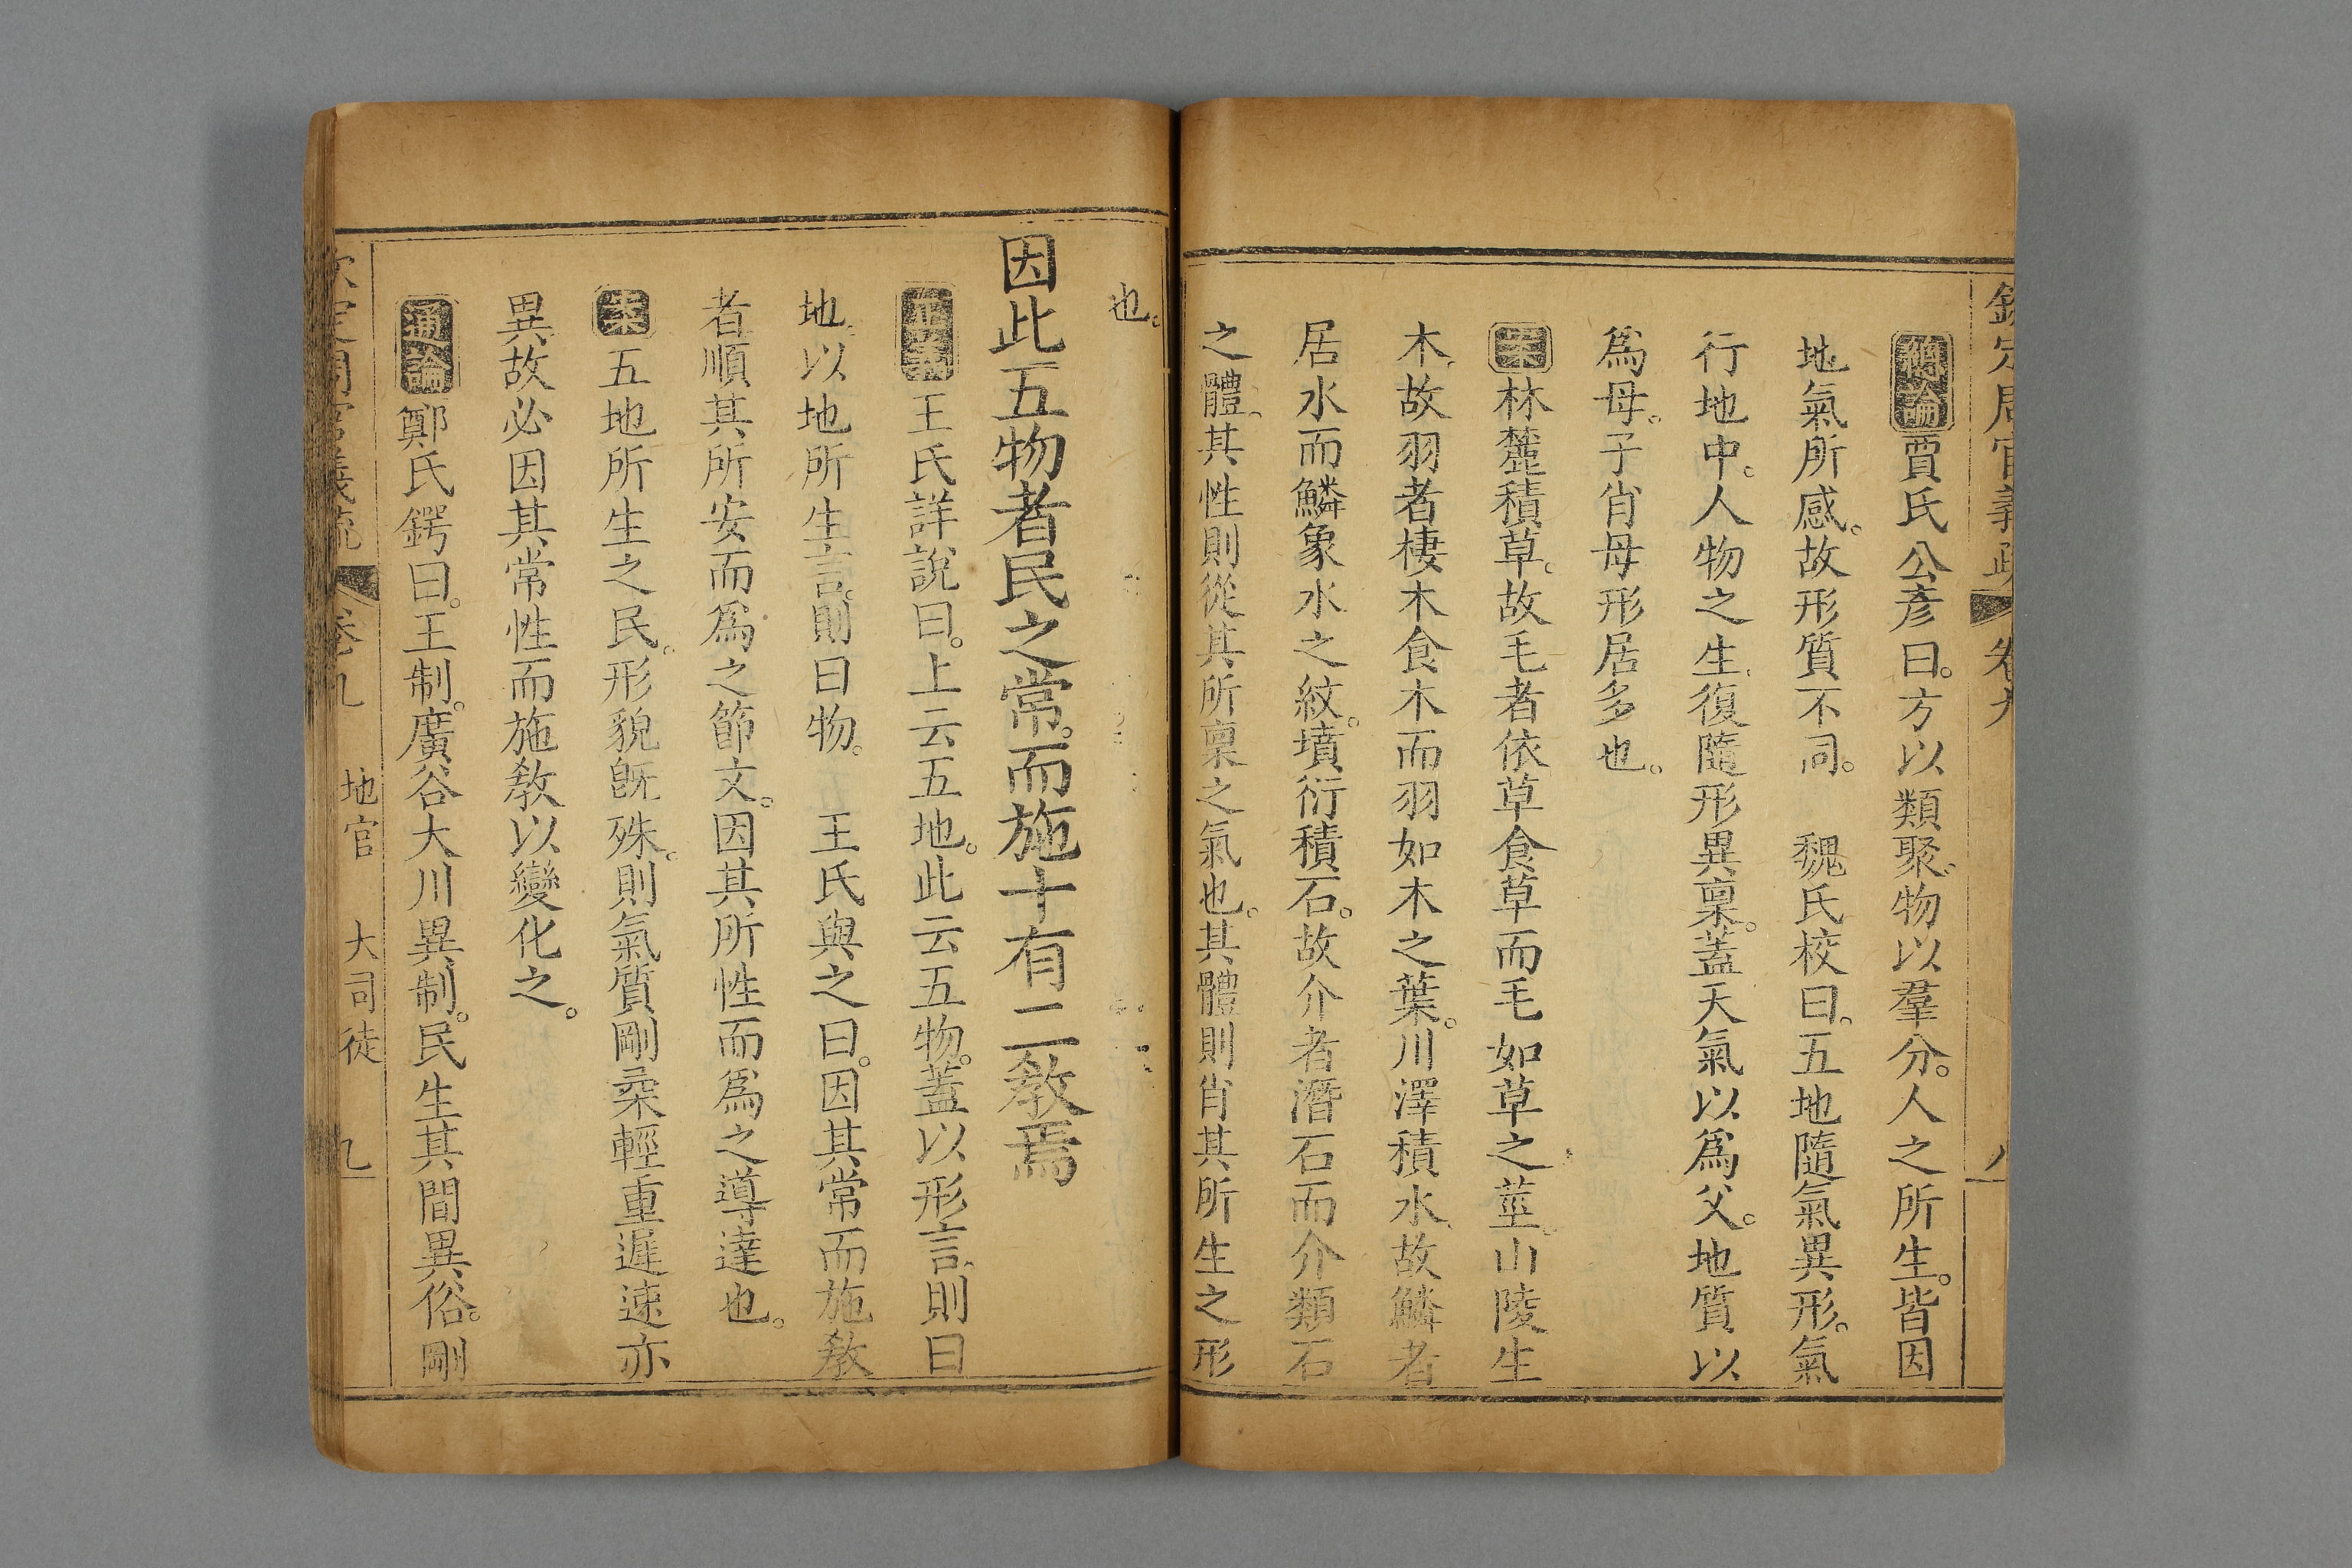 欽定周官義疏 卷九 八
總論賈氏公彥曰。方以類聚。物以羣分。人之所生。皆因
地氣所感。故形質不同。 魏氏校曰。五地隨氣異形。氣
行地中。人物之生。復隨形異稟。蓋天氣以爲父。地質以
爲母。子肖母形居多也。
案林麓積草。故毛者依草食草而毛如草之莖。山陵生
木。故羽者棲木食木而羽如木之葉。川澤積水。故鱗者
居水而鱗象水之紋。墳衍積石。故介者潛石而介類石
之體。其性則從其所稟之氣也。其體則肖其所生之形
也。
因此五物者民之常。而施十有二敎焉
正義王氏詳說曰。上云五地。此云五物。蓋以形言。則曰
地。以地所生言。則曰物。 王氏與之曰。因其常而施敎
者順其所安而爲之節文。因其所性而爲之導達也。
案五地所生之民。形貌旣殊。則氣質剛柔輕重遲速亦
異故必因其常性而施敎以變化之。
通論鄭氏鍔曰。王制。廣谷大川異制。民生其間異俗。剛
欽定周官義疏 卷九 地官 大司徒 九